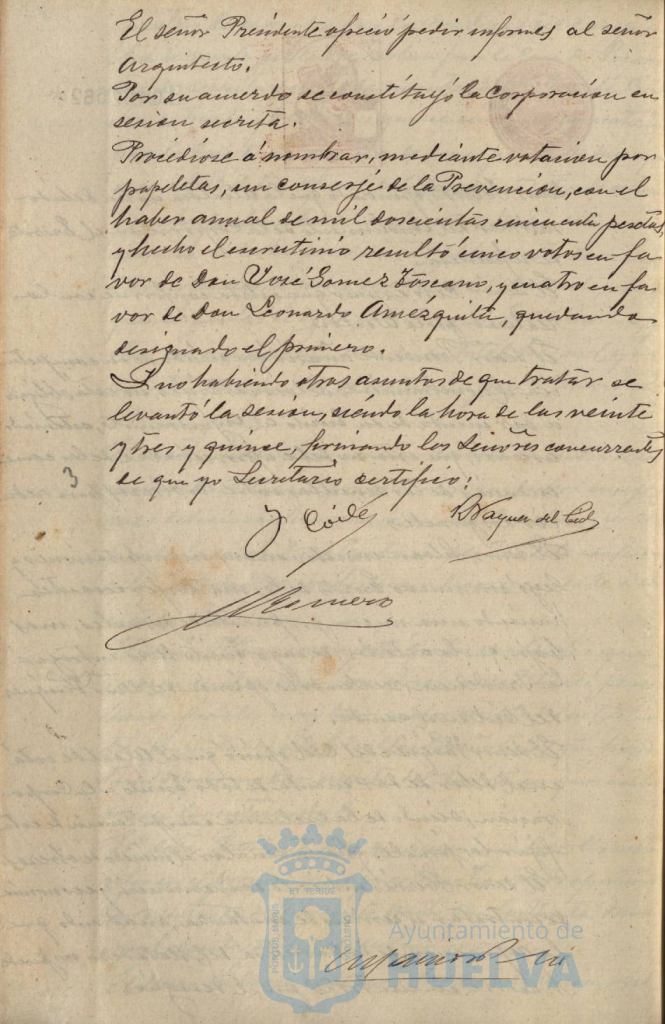 El señor Presidente ofreció pedir informes al señor
Arquitecto.
Por su acuerdo se constituyó la Corporación en
sesión secreta.
Procedióse á nombrar, mediante votación por
papeletas, un conserje de la Prevención, con el
haber anual de mil doscientas cincuenta pesetas,
y hecho el escrutinio resultó cinco votos en fa
vor de Don José Gomez Toscano, y cuatro en fa
vor de Don Leonardo Amézquita, quedando
designado el primero.
Y no habiendo otros asuntos de que tratar se
levantó la sesión, siendo la hora de las veinte
y tres y quince, firmando los Señores concurrentes
de que yo Secretario certifico:
3
Romero
PORTUS MARIS
ET TERRAE
CUSTODIA
Ayuntamiento de
HUELVA